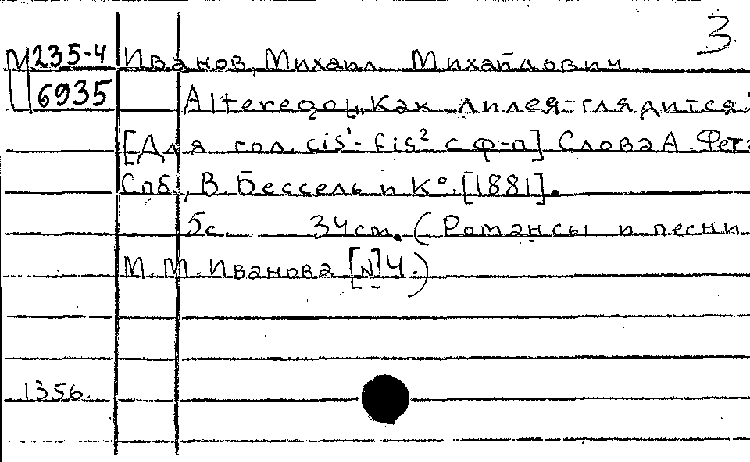 3
М 235-4 Иванов, Михаил Михайлович
6935 Alter ego. "Как лилея глядится"
[Для гол. cis¹-fis² с ф-п] Слова А. Фета
Спб., В. Бессель и Кº. [1881].
5с. 34см. (Романсы и песни
М. М. Иванова [№] 4.)
1356.